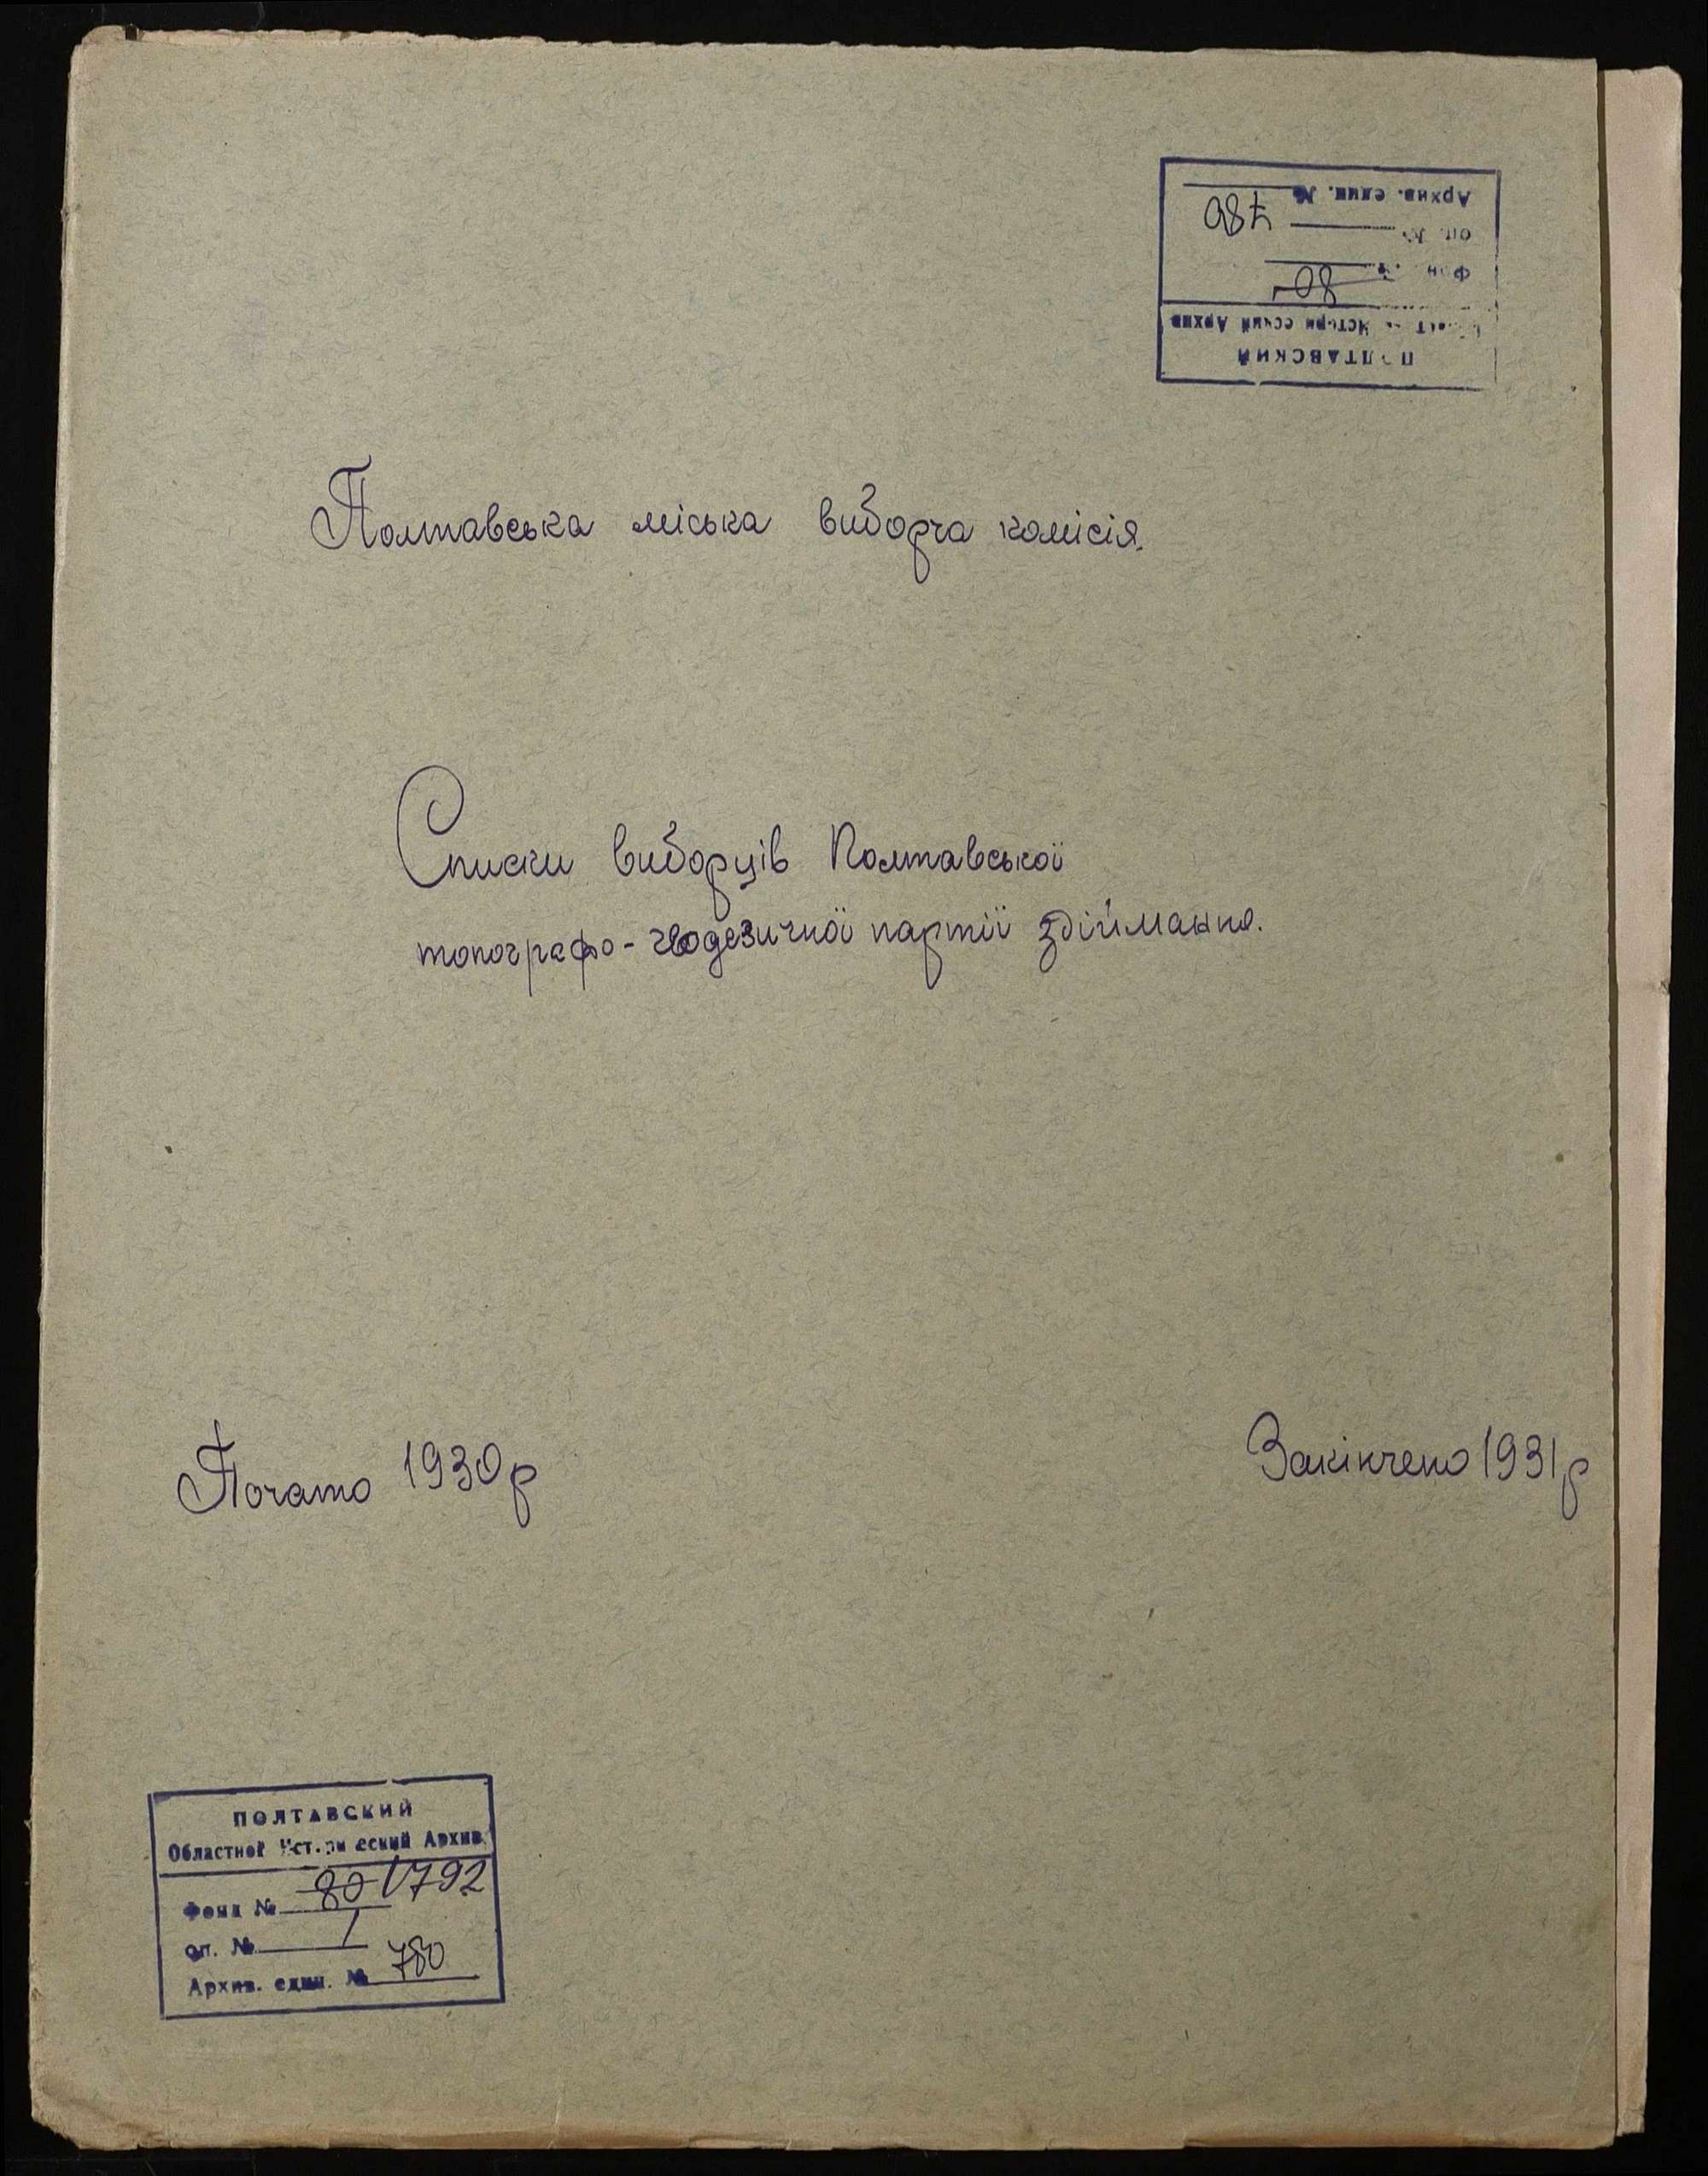 Архив. един. № 780
оп. №
Фон
80
Архив
ПОЛТАВСКИЙ
Полтавська міська виборча комісія.
Списки виборців Полтавської
топографо-геодезичної партії здіймання.
Почато 1930р
Закінчено 1931р
ПОЛТАВСКИЙ
Областной Исторический Архив
Фонд № 80 1792
оп. № 1
Архив. един. № 780